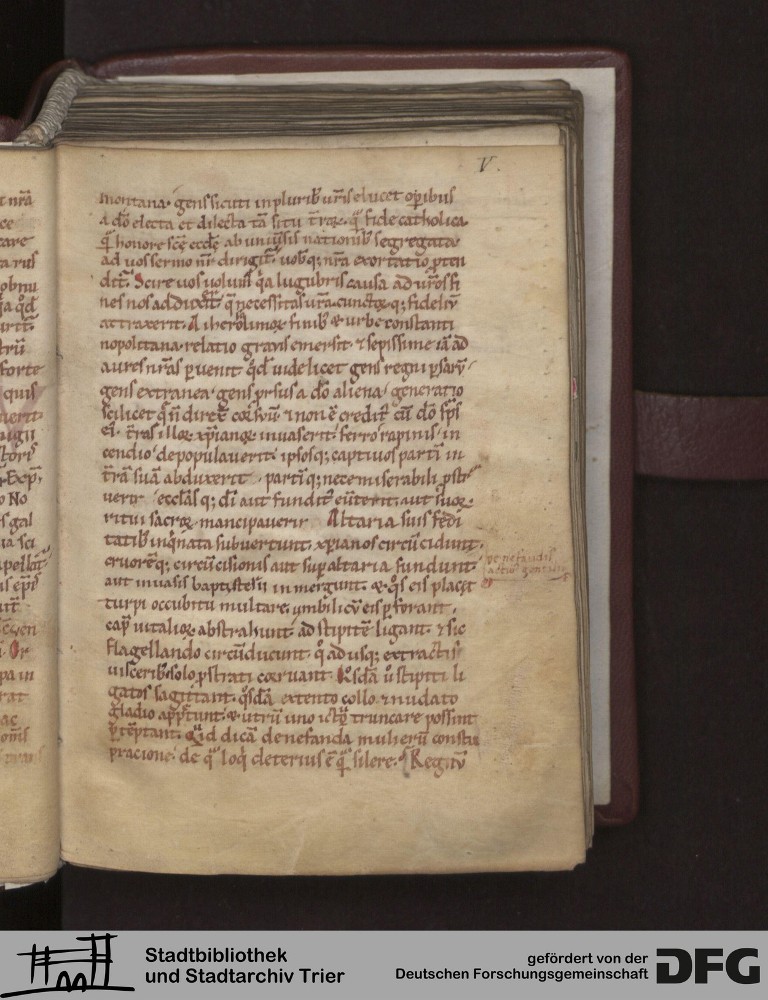 V
montana. gens sicuti in plurib; urīs elucet operibus
a dō electa et dilecta tā situ trar̄. quā fide catholica
quā honore scē eccłe. ab uniuersis nationib; segregata
ad uos sermo nr̄ dirigit. uobq; nr̄a exortatio pten
dit. Scire uos uolum̄ qa lugubris causa ad urōs fi
nes nos adduxit. quę necessitas urā. cunctorq; fideliū
attraxerit. A iherosolimorū finib; & urbe constanti
nopolitana relatio grauis emersit. & sepissime iā ad
aures nrās peruenit. qd uidelicet gens regni psarū.
gens extranea. gens psus a dō aliena. generatio
scilicet q̄ n̄ direx̄ cor suū. & non ē credit cū dō sps
ei. trās illorū xp̄ianorū inuaserit. ferro rapinis in
cendio depopulauerit. ipsosq; captiuos partī in
trā suā abduxerit. partīq; nece miserabili pstr
uerit. ecclāsq; dī aut fundit euterit. aut suorū
ritui sacrorū mancipauerit. Altaria suis fędi
tatib; inqnata subuertunt. xp̄ianos circūcidunt.
cruorēq; circūcisionis aut sup altaria fundunt.
aut in uasis baptisterii inmergunt. & qs eis placet
turpi occubitu multare. umbilicū eis pforant.
cap uitaliorū abstrahunt. ad stipitē ligant. & sic
flagellando circūducunt. qadusq; extractis
uisceribus solo pstrati corruant. Qsdā ū stipiti li
gatos sagittant. qsdā extento collo. & nudato
gladio appetunt. & utrū uno ictu truncare possint
ptēptant. Qid dicā de nefanda mulierū constu
pracione. de qua loq deterius ē quā silere. Regnū
de nefandis
actib; gentiliū
Stadtbibliothek
und Stadtarchiv Trier
gefördert von der
Deutschen Forschungsgemeinschaft
DFG